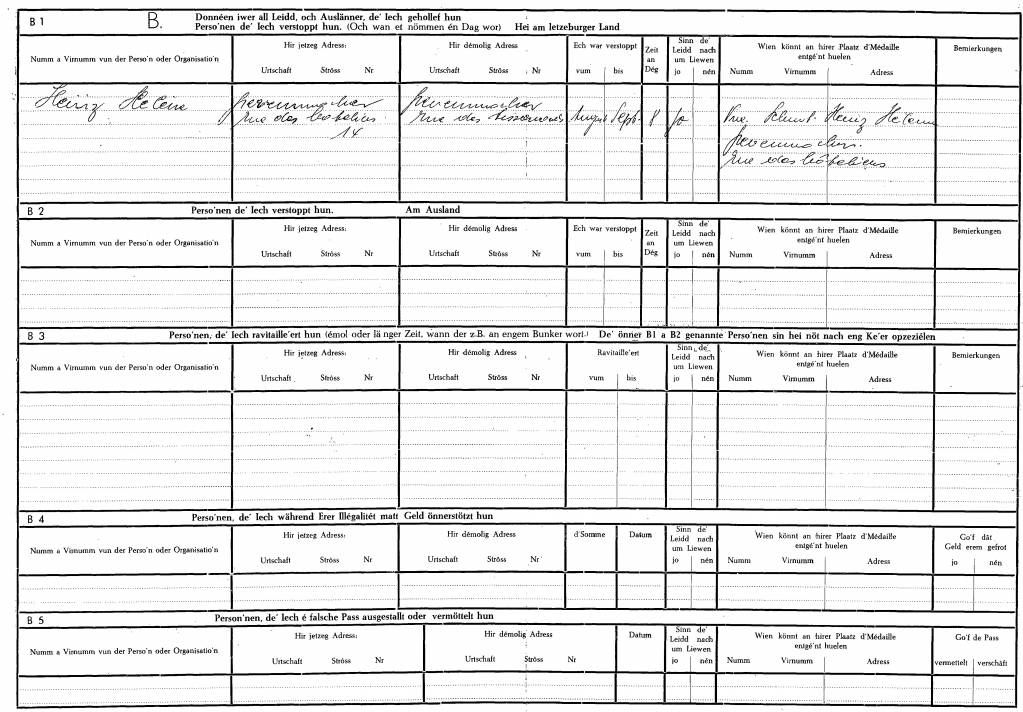 B 1 B. Donnéen iwer all Leidd, och Auslänner, de' Iech gehollef hun
Perso'nen de' Iech verstoppt hun. (Och wan et nömmen én Dag wor) Hei am letzeburger Land
Numm a Virnumm vun der Perso'n oder Organisatio'n
Hir jetzeg Adress:
Urtschaft Ströss Nr
Hir démolig Adress
Urtschaft Ströss Nr
Ech war verstoppt
vum bis
Zeit
an
Dég
Sinn de'
Leidd nach
um Liewen
jo nén
Wien könnt an hirer Plaatz d'Médaille
entgé'nt huelen
Numm Virnumm Adress
Bemierkungen
Heinz Helène
14
August Sept. 8 jo
Heinz
B 2 Perso'nen de' Iech verstoppt hun. Am Ausland
Numm a Virnumm vun der Perso'n oder Organisatio'n
Hir jetzeg Adress:
Urtschaft Ströss Nr
Hir démolig Adress
Urtschaft Ströss Nr
Ech war verstoppt
vum bis
Zeit
an
Dég
Sinn de'
Leidd nach
um Liewen
jo nén
Wien könnt an hirer Plaatz d'Médaille
entgé'nt huelen
Numm Virnumm Adress
Bemierkungen
B 3 Perso'nen, de' Iech ravitaille'ert hun (émol oder länger Zeit, wann der z.B. an engem Bunker wort.) De' önner B1 a B2 genannte Perso'nen sin hei nöt nach eng Ke'er opzeziélen
Numm a Virnumm vun der Perso'n oder Organisatio'n
Hir jetzeg Adress:
Urtschaft Ströss Nr
Hir démolig Adress
Urtschaft Ströss Nr
Ravitaille'ert
vum bis
Sinn de'
Leidd nach
um Liewen
jo nén
Wien könnt an hirer Plaatz d'Médaille
entgé'nt huelen
Numm Virnumm Adress
Bemierkungen
B 4 Perso'nen, de' Iech während Erer Illégalitét matt Geld önnerstötzt hun
Numm a Virnumm vun der Perso'n oder Organisatio'n
Hir jetzeg Adress:
Urtschaft Ströss Nr
Hir démolig Adress
Urtschaft Ströss Nr
d'Somme
Datum
Sinn de'
Leidd nach
um Liewen
jo nén
Wien könnt an hirer Plaatz d'Médaille
entgé'nt huelen
Numm Virnumm Adress
Go'f dât
Geld erem gefrot
jo nén
B 5 Person'nen, de' Iech é falsche Pass ausgestallt oder vermöttelt hun
Numm a Virnumm vun der Perso'n oder Organisatio'n
Hir jetzeg Adress:
Urtschaft Ströss Nr
Hir démolig Adress
Urtschaft Ströss Nr
Datum
Sinn de'
Leidd nach
um Liewen
jo nén
Wien könnt an hirer Plaatz d'Médaille
entgé'nt huelen
Numm Virnumm Adress
Go'f de Pass
vermettelt verschâft